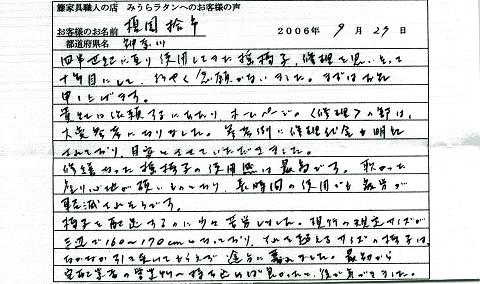 籐家具職人の店 みうらラタンへのお客様の声
お客様のお名前
2006年 9月29日
都道府県名 神奈川
四半世紀に亘り使用してきた揺椅子、修理を思い立って
十年目にして、ようやく念願がかないました。まずはお礼
申し上げます。
貴店に依頼するにあたり、ホームページの〈修理〉の部は、
大変参考になりました。写真例に修理代金も明記
されており、目安とさせていただきました。
修繕なった揺椅子の使用感は最高です。
座り心地が良い 長時間の使用でも疲労が
軽減されそうです。
椅子を配送するのに少々苦労しました。現行の規定サイズが
三辺で160〜170cmとなっており、それを超えるサイズの椅子は、
なかなか引き受けてもらえず途方に暮れました。最初から
宅配業者の営業所へ持ち込めば良かったと、後で気がつきました。